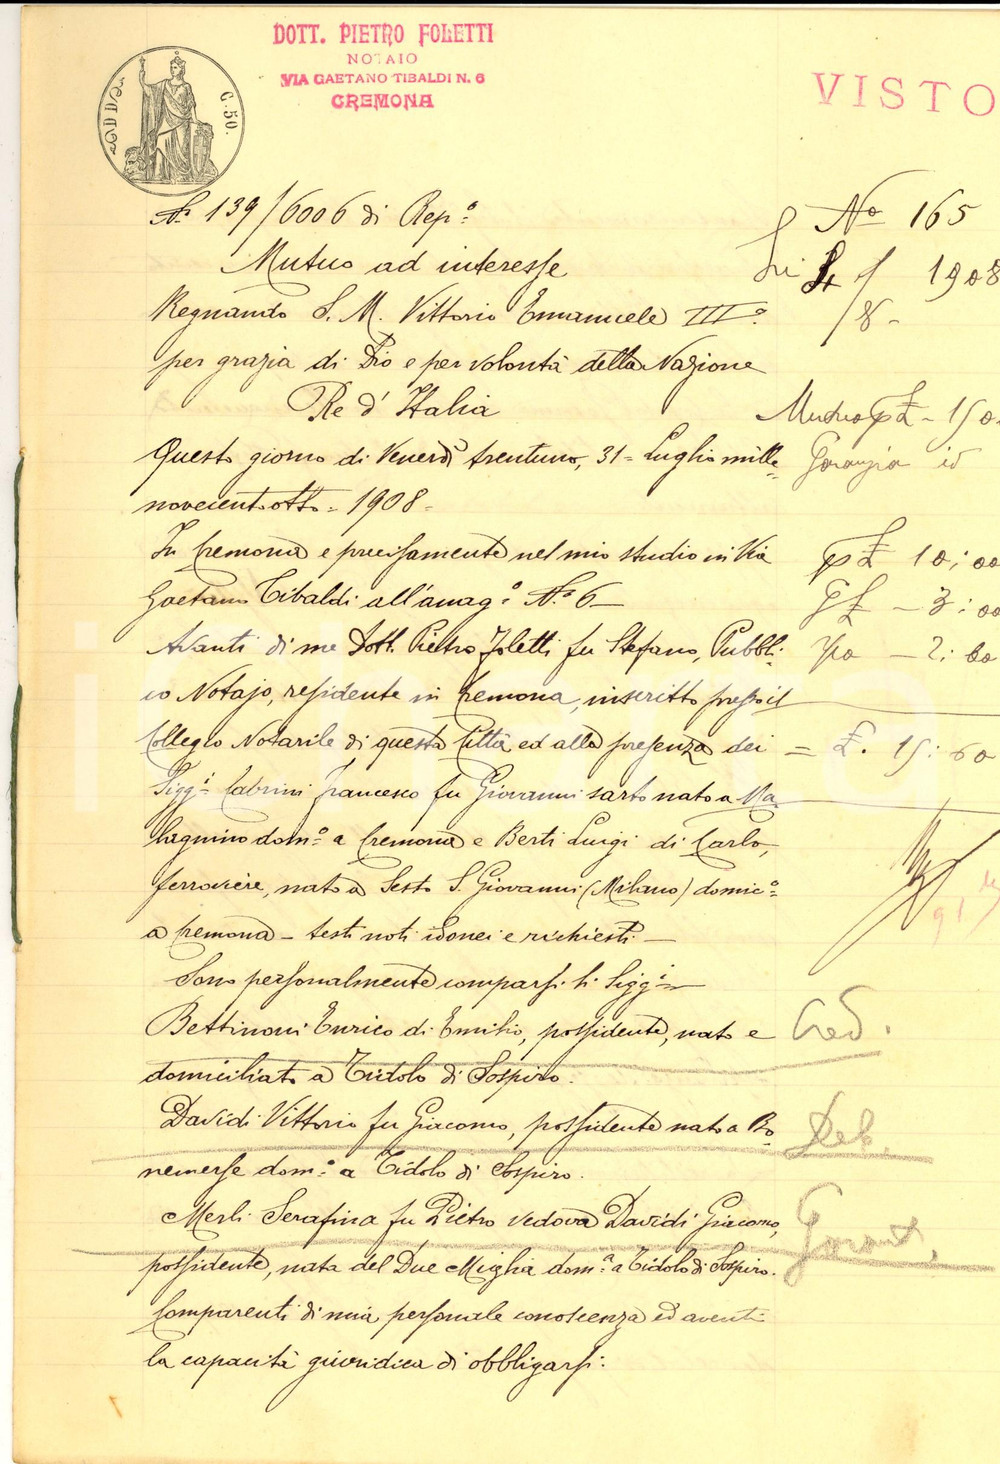 DOTT. PIETRO FOLETTI
NOTAIO
VIA GAETANO TIBALDI N. 6
CREMONA
VISTO
C. 50.
Nº 139/6006 di Rep.º
Nº 165
Mutuo ad interesse
1908
Regnando S. M. Vittorio Emanuele IIIº.
/8-
per grazia di Dio e per volontà della Nazione
Re d'Italia
Mutuo p £ - 150
Questo giorno di Venerdì trentuno, 31 = Luglio mille=
Garanzia id
novecentotto = 1908 -
In Cremona e precisamente nel mio studio in Via
p £ 10; 00
Gaetano Tibaldi all'anag.º Nº 6 -
- 3: 00
Avanti di me Dott. Pietro Foletti fu Stefano, Pubbli-
- 2: 60
co Notajo, residente in Cremona, inscritto presso il
Collegio Notarile di questa Città ed alla presenza dei
= £. 15: 60
Sigg.i Cabrini Francesco fu Giovanni sarto nato a Ma=
lagnino dom.º a Cremona e Berti Luigi di Carlo,
ferroviere, nato a Sesto S. Giovanni (Milano) domic.º
a Cremona - testi noti idonei e richiesti -
Sono personalmente comparsi li Sigg.i =
Bettinoni Enrico di Emilio, possidente, nato e
Cred.
domiciliato a Tidolo di Sospiro.
Davidi Vittorio fu Giacomo, possidente nato a Bo=
Deb.
nemerse dom.º a Tidolo di Sospiro.
Merli Serafina fu Pietro vedova Davidi Giacomo,
Garant.
possidente, nata del Due Miglia dom.ª a Tidolo di Sospiro.
Comparenti di mia personale conoscenza ed aventi
la capacità giuridica di obbligarsi: